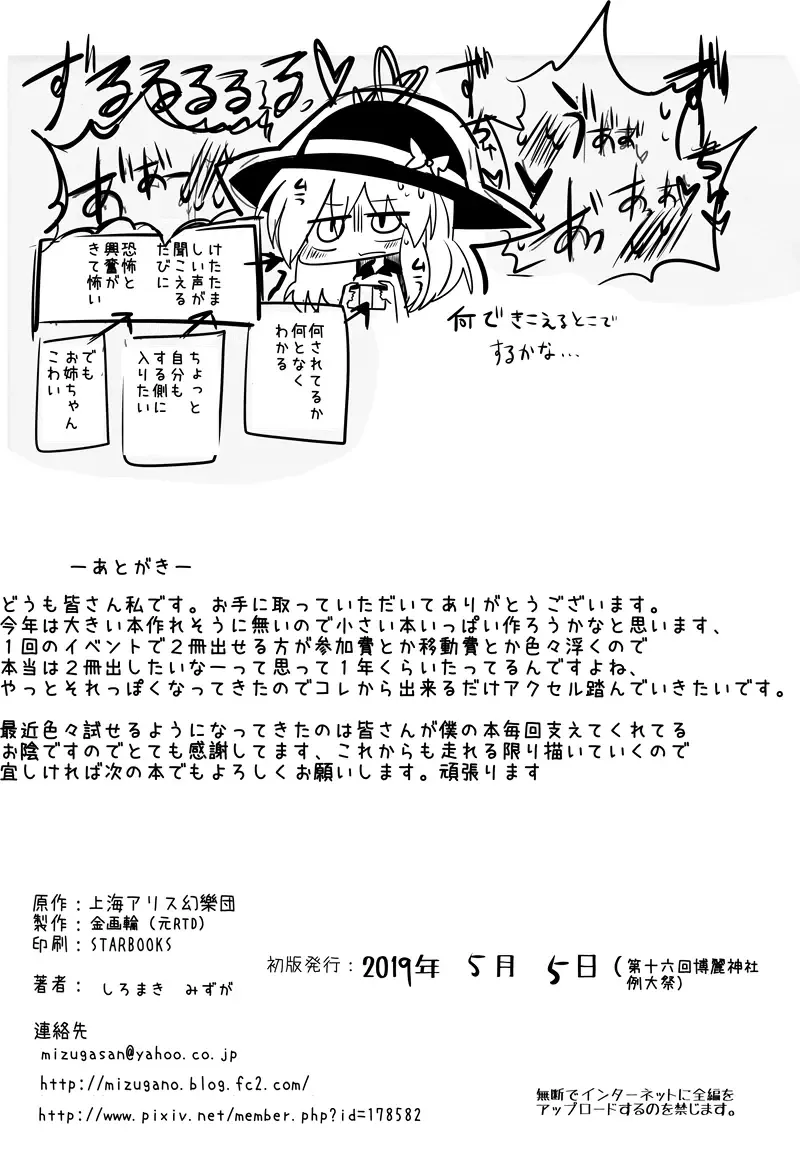 ずるるるるる♡
ず
ぢゅ
うああ♡
ず
ちゅ
ああ♡
あ
あぁーっ
ムラ
ムラ
けたたま
しい声が
聞こえる
たびに
恐怖と
興奮が
きて怖い
何されてるか
何となく
わかる
ちょっと
自分も
する側に
入りたい
でも
お姉ちゃん
こわい
何できこえるとこで
するかな…
ーあとがきー
どうも皆さん私です。お手に取っていただいてありがとうございます。
今年は大きい本作れそうに無いので小さい本いっぱい作ろうかなと思います、
1回のイベントで2冊出せる方が参加費とか移動費とか色々浮くので
本当は2冊出したいなーって思って1年くらいたってるんですよね、
やっとそれっぽくなってきたのでコレから出来るだけアクセル踏んでいきたいです。
最近色々試せるようになってきたのは皆さんが僕の本毎回支えてくれてる
お陰ですのでとても感謝してます、これからも走れる限り描いていくので
宜しければ次の本でもよろしくお願いします。頑張ります
原作：上海アリス幻樂団
製作：金画輪（元RTD）
印刷：STARBOOKS
初版発行：2019年 5月 5日（第十六回博麗神社
例大祭）
著者： しろまき みずが
連絡先
mizugasan@yahoo.co.jp
http://mizugano.blog.fc2.com/
http://www.pixiv.net/member.php?id=178582
無断でインターネットに全編を
アップロードするのを禁じます。